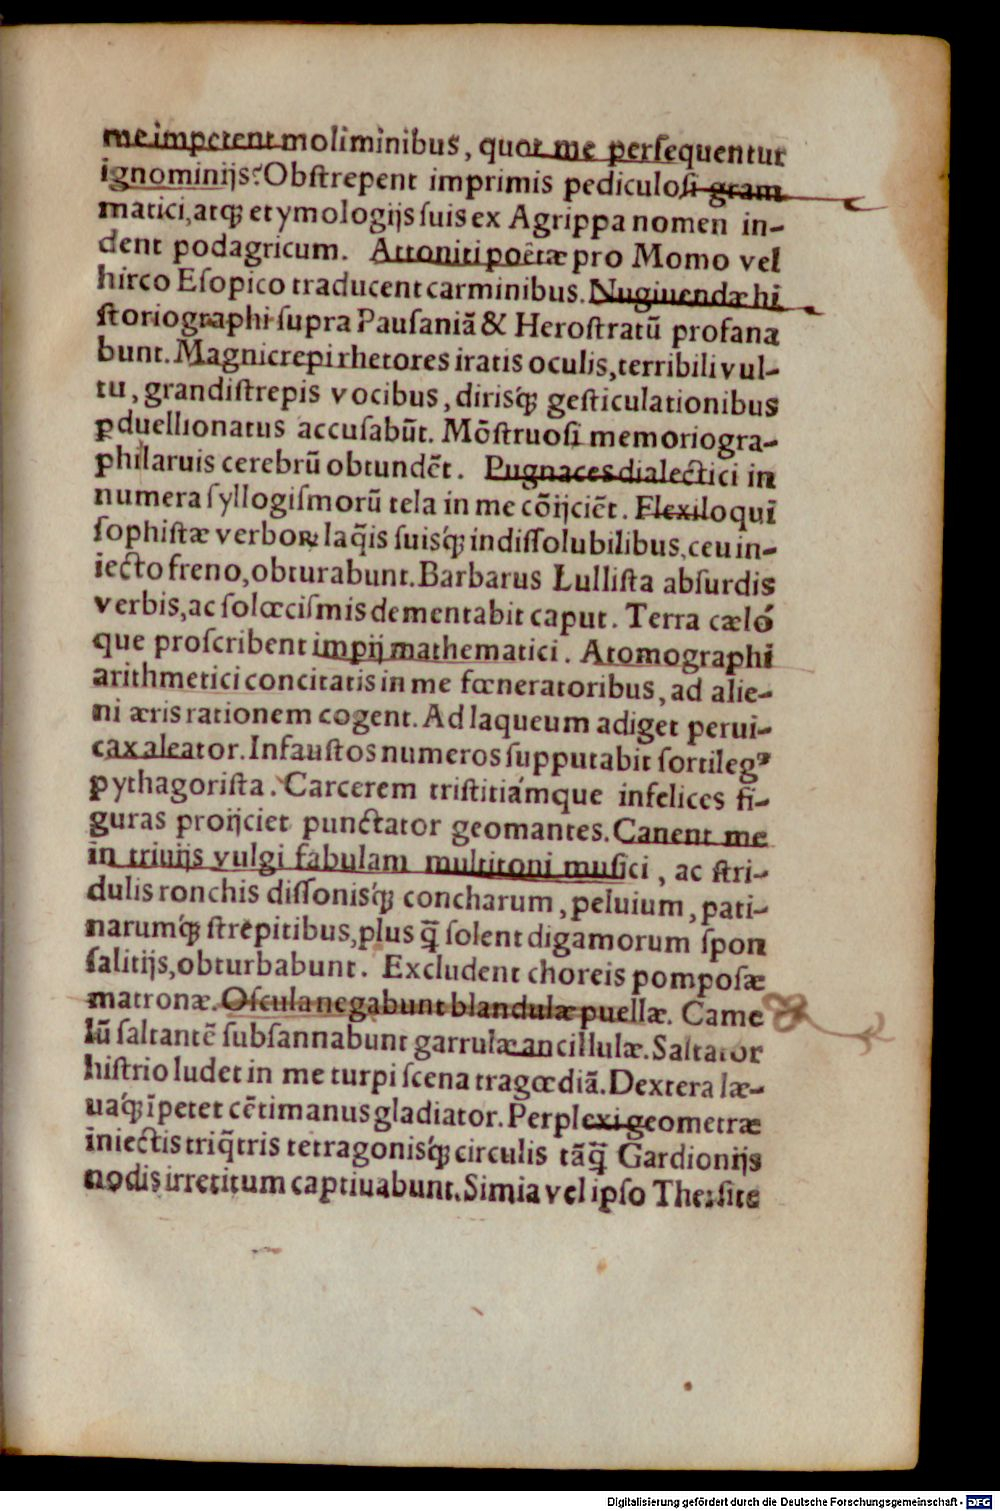 me impetent moliminibus, quot me persequentur
ignominijs? Obstrepent imprimis pediculosi gram
matici, atq; etymologijs suis ex Agrippa nomen in-
dent podagricum. Attoniti poëtæ pro Momo vel
hirco Esopico traducent carminibus. Nugiuendæ hi
storiographi supra Pausaniã & Herostratũ profana
bunt. Magnicrepi rhetores iratis oculis, terribili vul-
tu, grandistrepis vocibus, dirisq́; gesticulationibus
ꝑduellionatus accusabũt. Mõstruosi memoriogra-
phi laruis cerebrũ obtundẽt. Pugnaces dialectici in
numera syllogismorũ tela in me cõijciẽt. Flexiloqui
sophistæ verboꝝ laq̃is suisq́; indissolubilibus, ceu in-
iecto freno, obturabunt. Barbarus Lullista absurdis
verbis, ac solœcismis dementabit caput. Terra cæló
que proscribent impij mathematici. Atomographi
arithmetici concitatis in me fœneratoribus, ad alie-
ni æris rationem cogent. Ad laqueum adiget perui-
cax aleator. Infaustos numeros supputabit sortilegꝰ
pythagorista. Carcerem tristitiámque infelices fi-
guras proijciet punctator geomantes. Canent me
in triuijs vulgi fabulam multitoni musici, ac stri-
dulis ronchis dissonisq́; concharum, peluium, pati-
narumq́; strepitibus, plus q̃ solent digamorum spon
salitijs, obturbabunt. Excludent choreis pomposæ
matronæ. Oscula negabunt blandulæ puellæ. Came
lũ saltantẽ subsannabunt garrulæ ancillulæ. Saltator
histrio ludet in me turpi scena tragœdiã. Dextera læ-
uaq́; ĩpetet cẽtimanus gladiator. Perplexi geometræ
iniectis triq̃tris tetragonisq́; circulis tãq̃ Gardionijs
nodis irretitum captiuabunt. Simia vel ipso Thersite
Digitalisierung gefördert durch die Deutsche Forschungsgemeinschaft - DFG